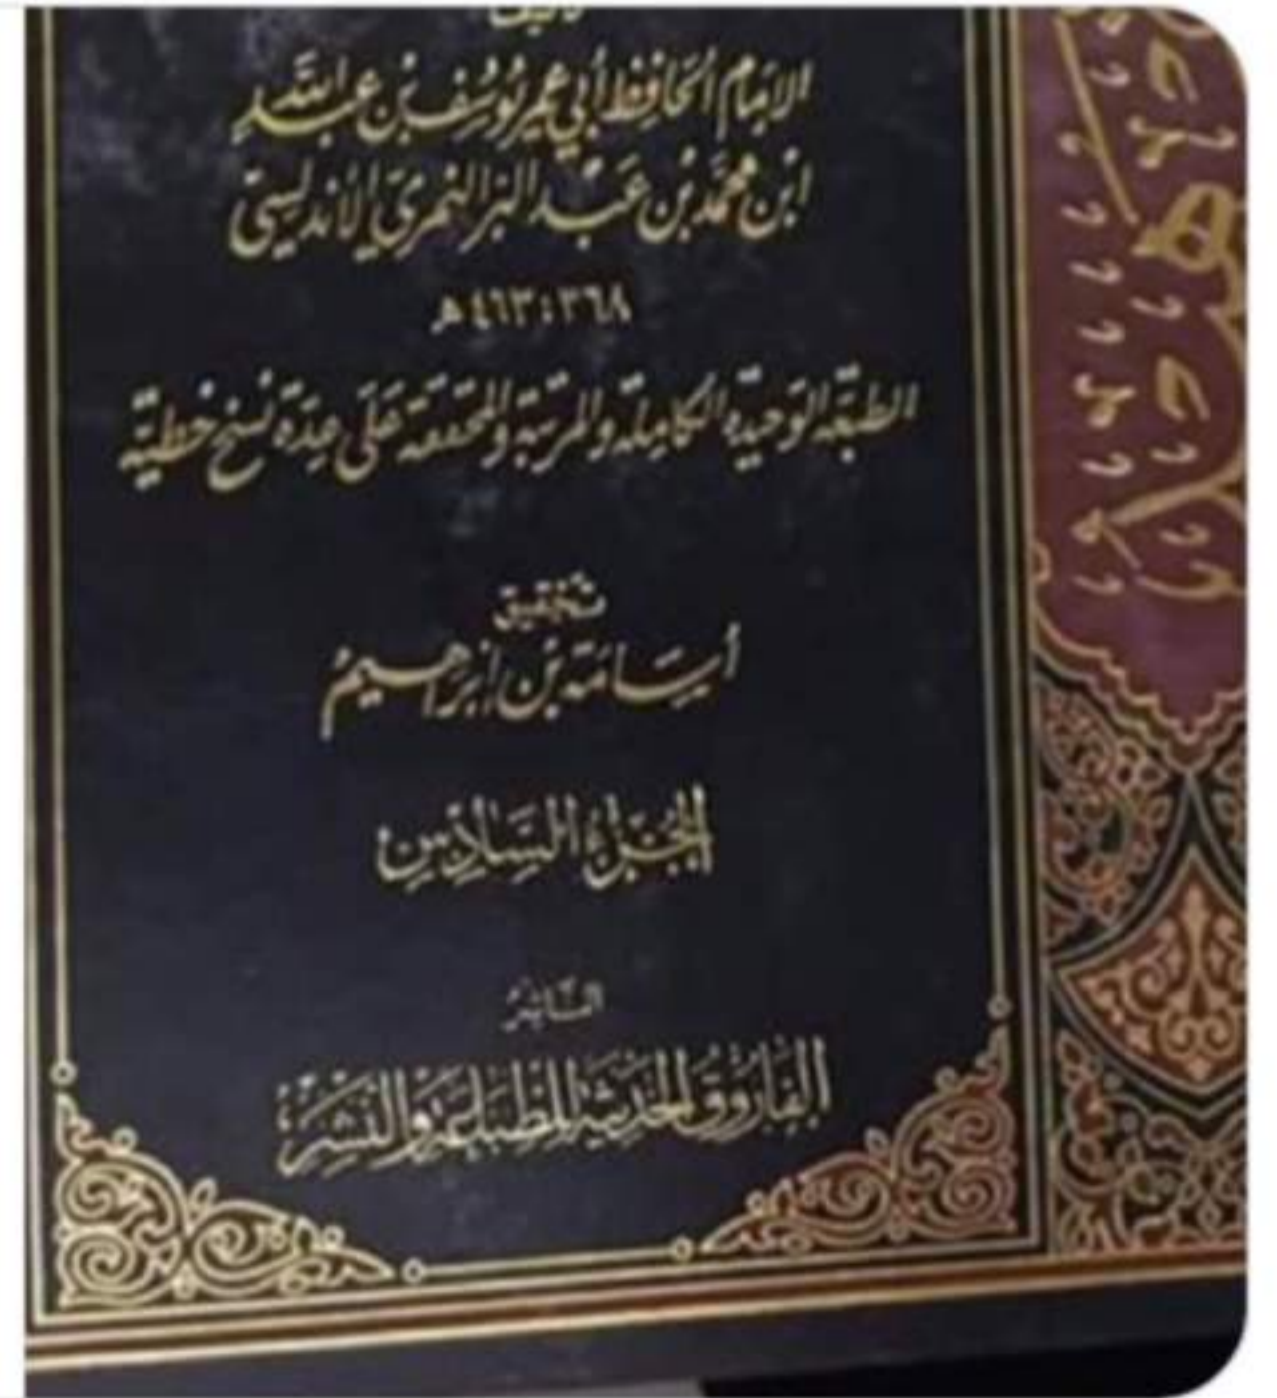 تأليف
الإمام الحافظ أبي عمر يوسف بن عبد الله
ابن محمد بن عبد البر النمري الأندلسي
٣٦٨ : ٤٦٣ هـ
الطبعة الوحيدة الكاملة والمرتبة والمحققة على عدة نسخ خطية
تحقيق
أسامة بن إبراهيم
الجزء السادس
الناشر
الفاروق الحديثة للطباعة والنشر